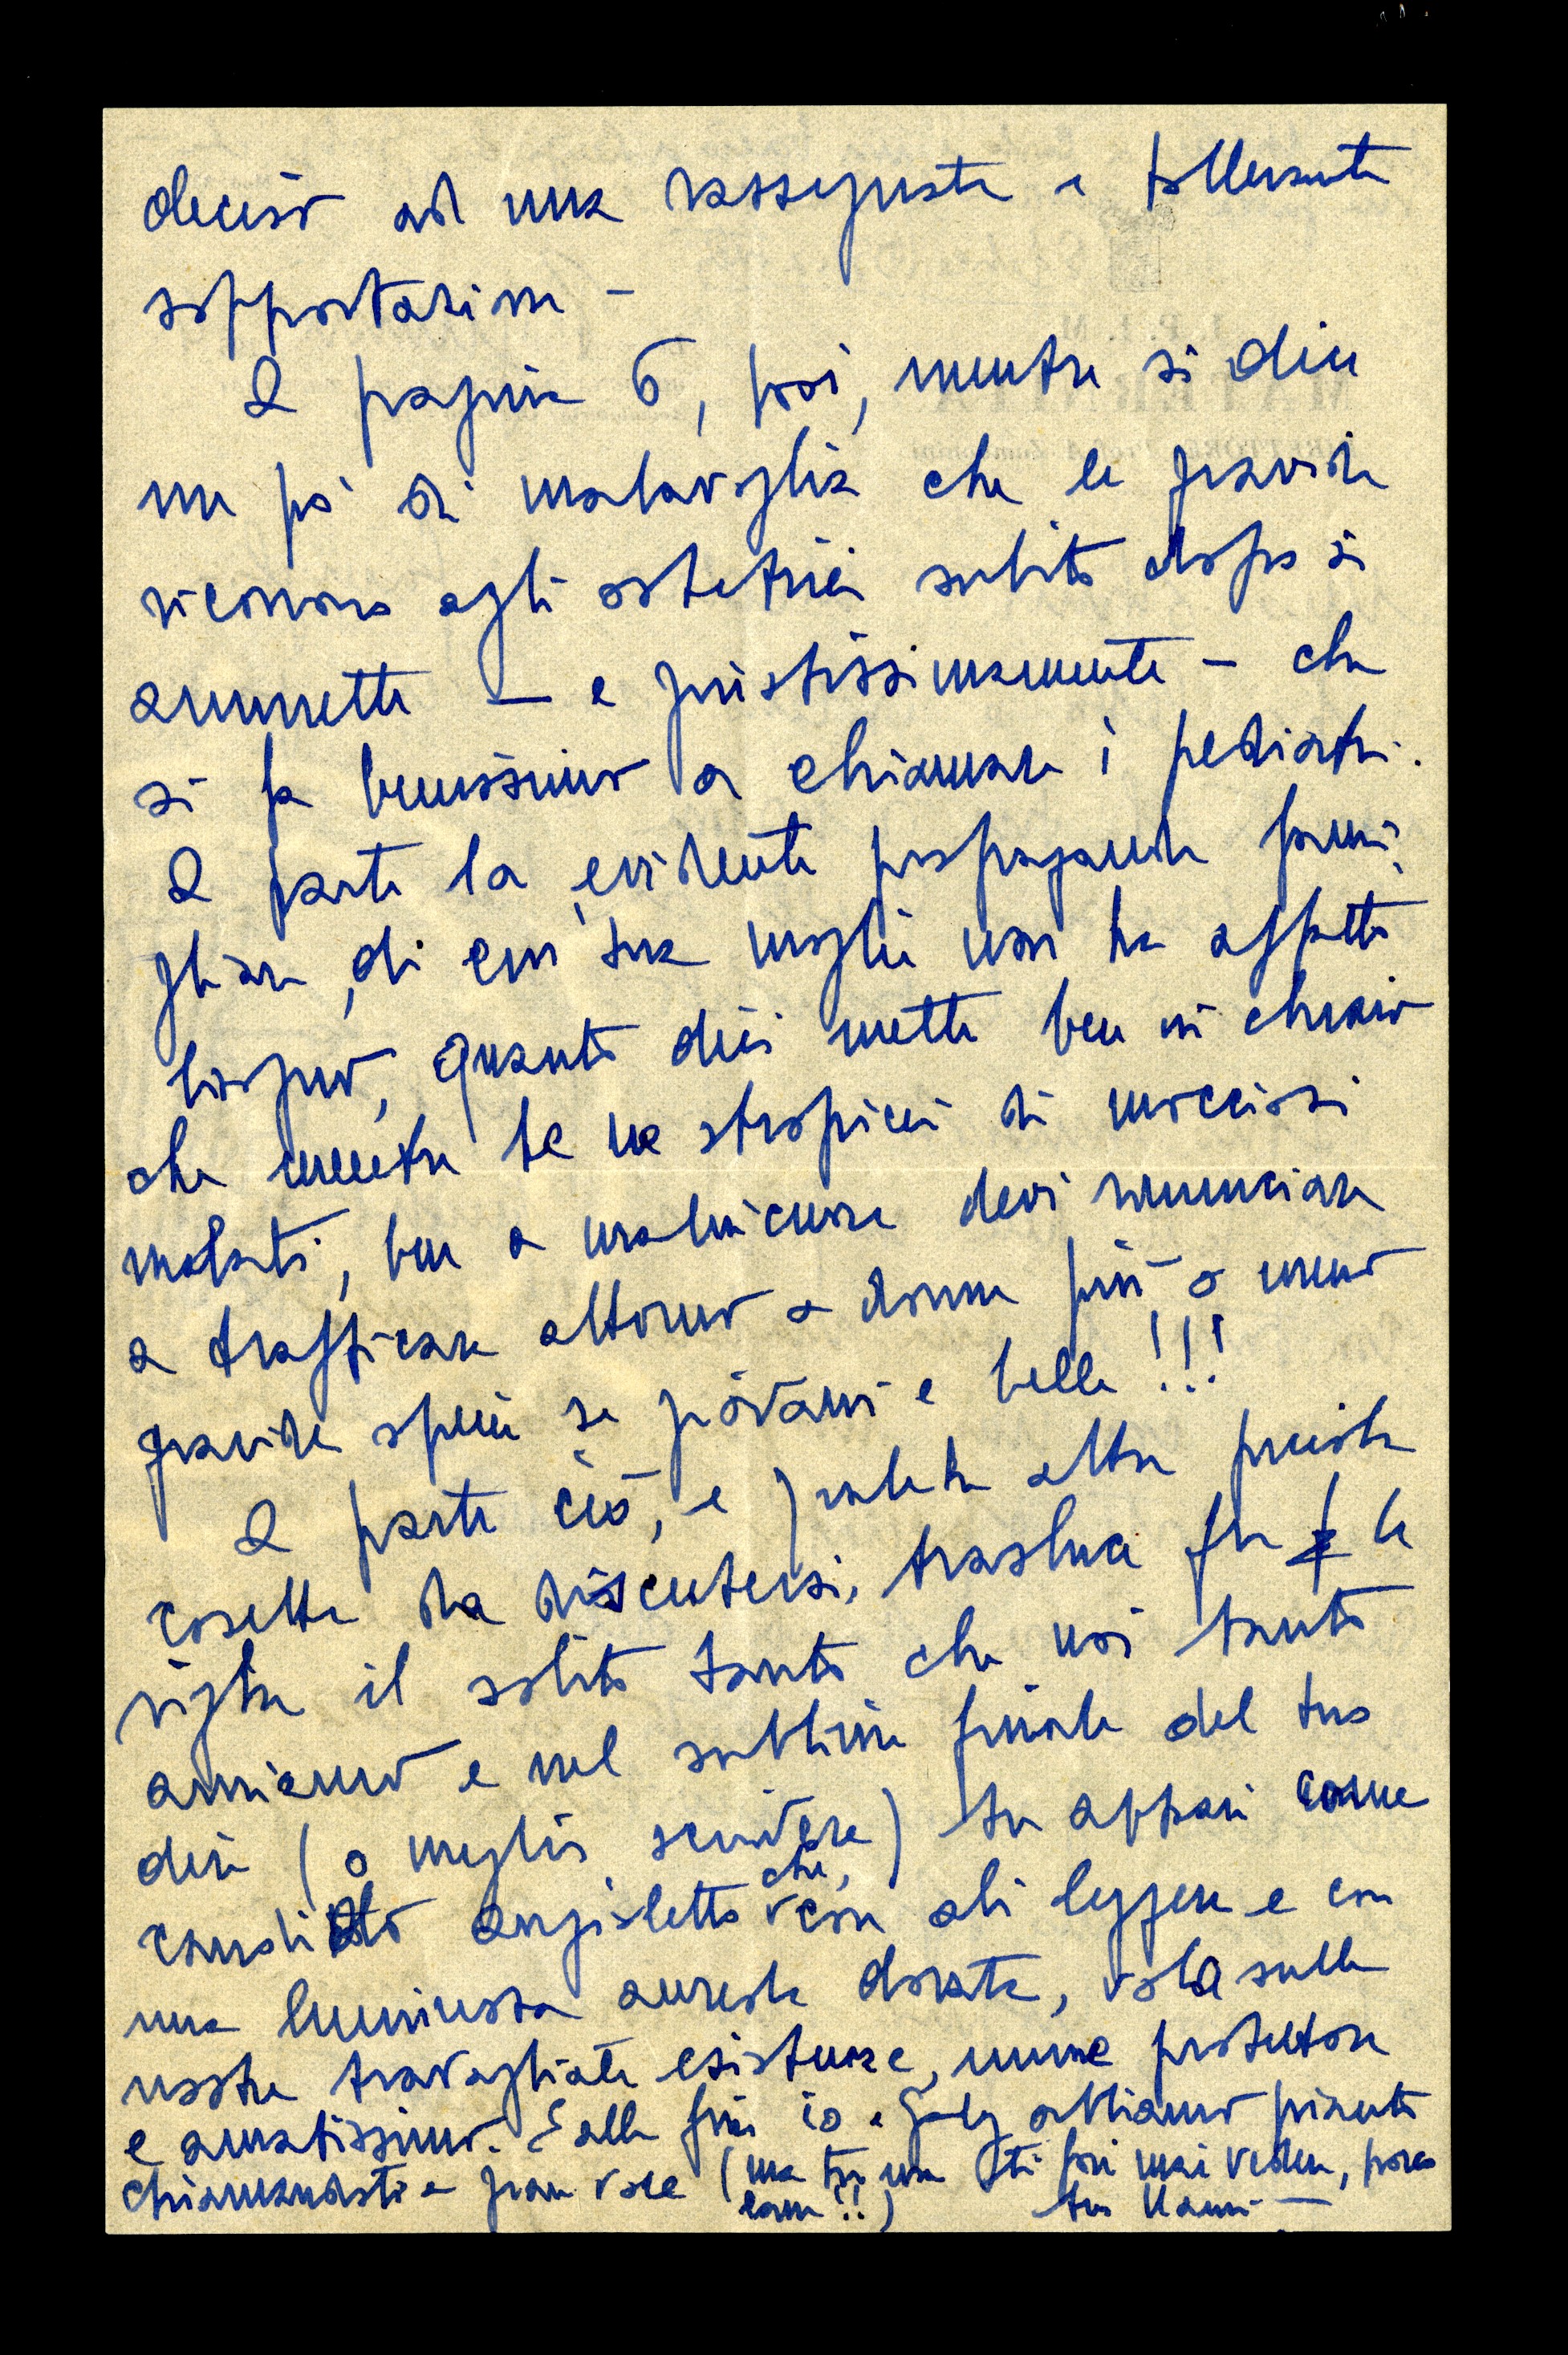 deciso ad una rassegnata e tollerante
sopportazione -
A pagina 6, poi, mentre si dice
un pò di malavoglia che le gravide
ricorrono agli ostetrici subito dopo si
ammette - e giustissimamente - che
si fa benissimo a chiamare i pediatri.
A parte la evidente propaganda fami-
gliare, di cui tua moglie non ha affatto
bisogno, quanto dici mette ben in chiaro
che mentre te ne stropicci di mocciosi
malati, ben a malincuore devi rinunciare
a trafficare attorno a donne più o meno
gravide specie se giovani e belle !!!
A parte ciò, e qualche altra piccola
cosetta da discutersi, trasluce fra le
righe il solito tanto che noi tanto
amiamo e nel sublime finale del tuo
dire (o meglio scrivere) tu appari come
candido angioletto che, con ali leggere e con
una luminosa aureola dorata, vola sulle
nostre travagliate esistenze, nume protettore
e amatissimo. E alla fine io e abbiamo pianto
chiamandoti a gran voce (ma tu non ti fai mai vedere, porco
cane!!) tuo Nanni -